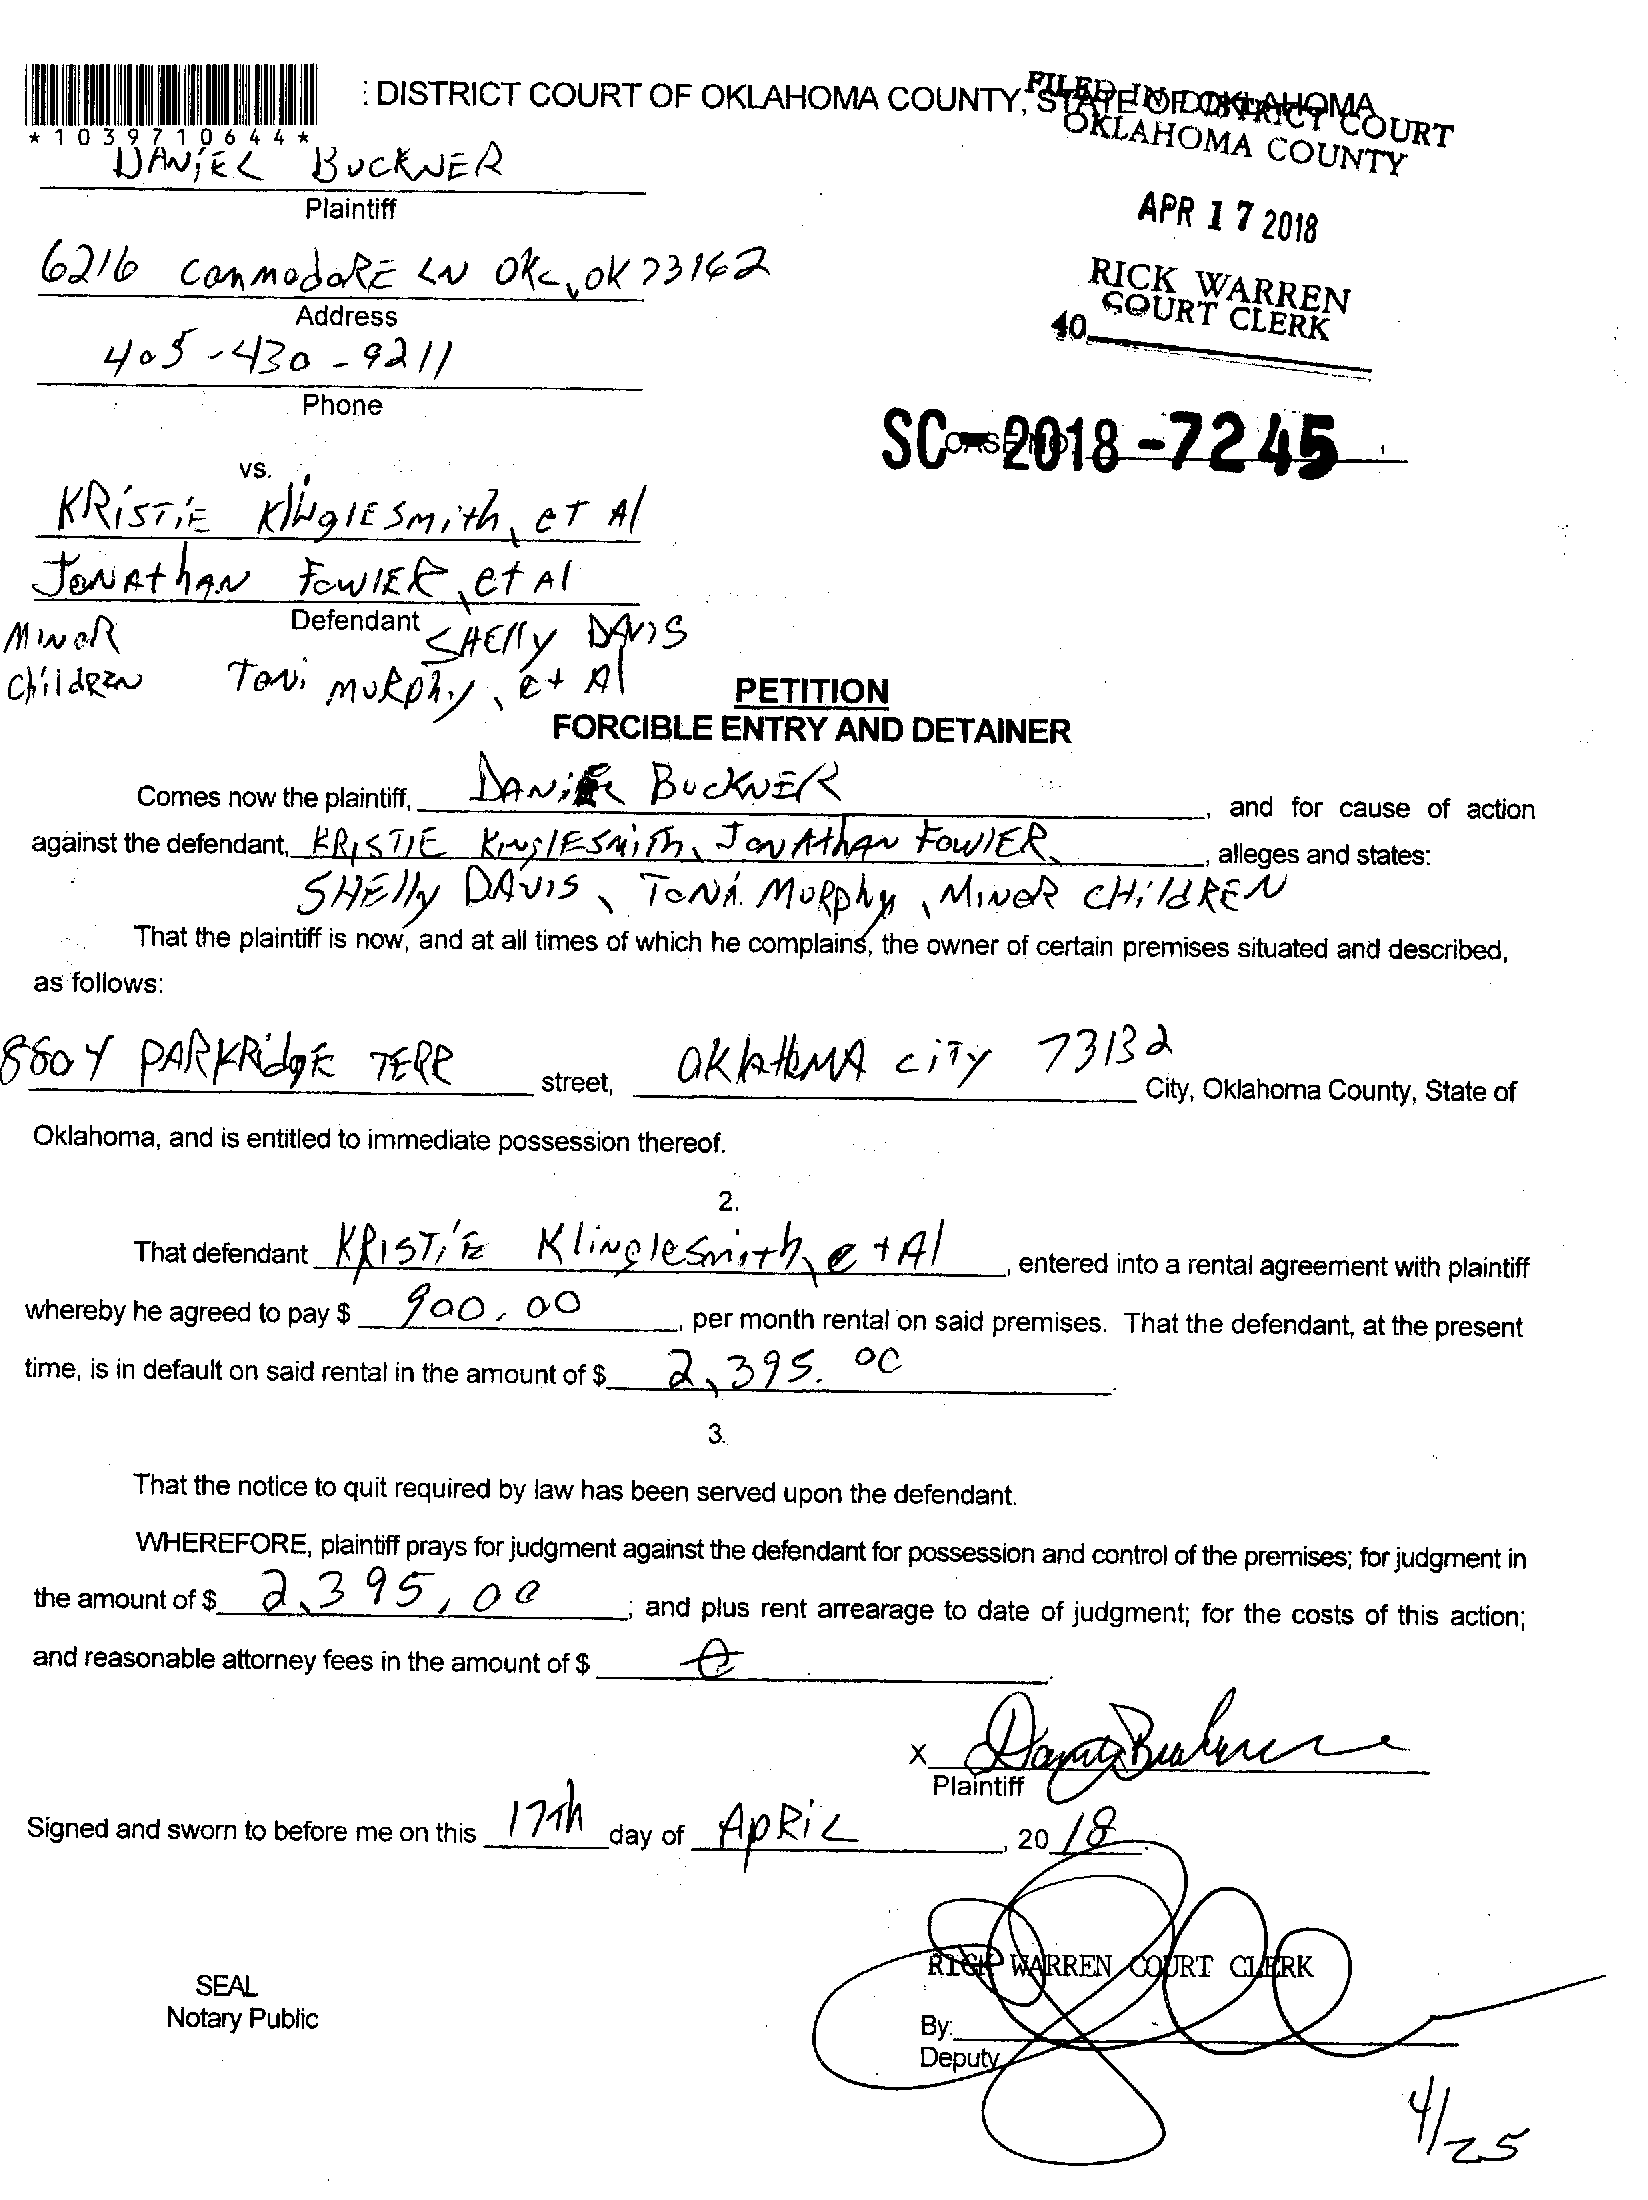 : DISTRICT COURT OF OKLAHOMA COUNTY, STATE OF OKLAHOMA
FILED IN DISTRICT COURT
OKLAHOMA COUNTY
*1039710644*
DANiEL BUCKNER
Plaintiff
APR 17 2018
6216 CommodoRE LN OKC, OK 73162
Address
RICK WARREN
COURT CLERK
40
405-430-9211
Phone
SC-2018-7245
vs.
KRiSTiE KliNglESmith, eT Al
JoNAthAN FowlER, et Al
Defendant
MiNoR
ChildREN
SHElly DAViS
ToNi MURphy, et Al
PETITION
FORCIBLE ENTRY AND DETAINER
Comes now the plaintiff, DANiEL BUCKNER, and for cause of action
against the defendant, KRISTIE KinglESmiTh, JoNAthAN FowlER, alleges and states:
SHElly DAVIS, ToNi MURphy, MiNoR CHildREN
That the plaintiff is now, and at all times of which he complains, the owner of certain premises situated and described,
as follows:
8804 PARKRidgE TERR street, OklAHoMA CiTy 73132 City, Oklahoma County, State of
Oklahoma, and is entitled to immediate possession thereof.
2.
That defendant KRISTiE KliNglesmith, et Al, entered into a rental agreement with plaintiff
whereby he agreed to pay $ 900.00, per month rental on said premises. That the defendant, at the present
time, is in default on said rental in the amount of $ 2,395.00.
3.
That the notice to quit required by law has been served upon the defendant.
WHEREFORE, plaintiff prays for judgment against the defendant for possession and control of the premises; for judgment in
the amount of $ 2,395.00; and plus rent arrearage to date of judgment; for the costs of this action;
and reasonable attorney fees in the amount of $ 0.
X
Plaintiff
Signed and sworn to before me on this 17th day of ApRiL, 2018.
RICK WARREN COURT CLERK
SEAL
Notary Public
By:
Deputy
4/25